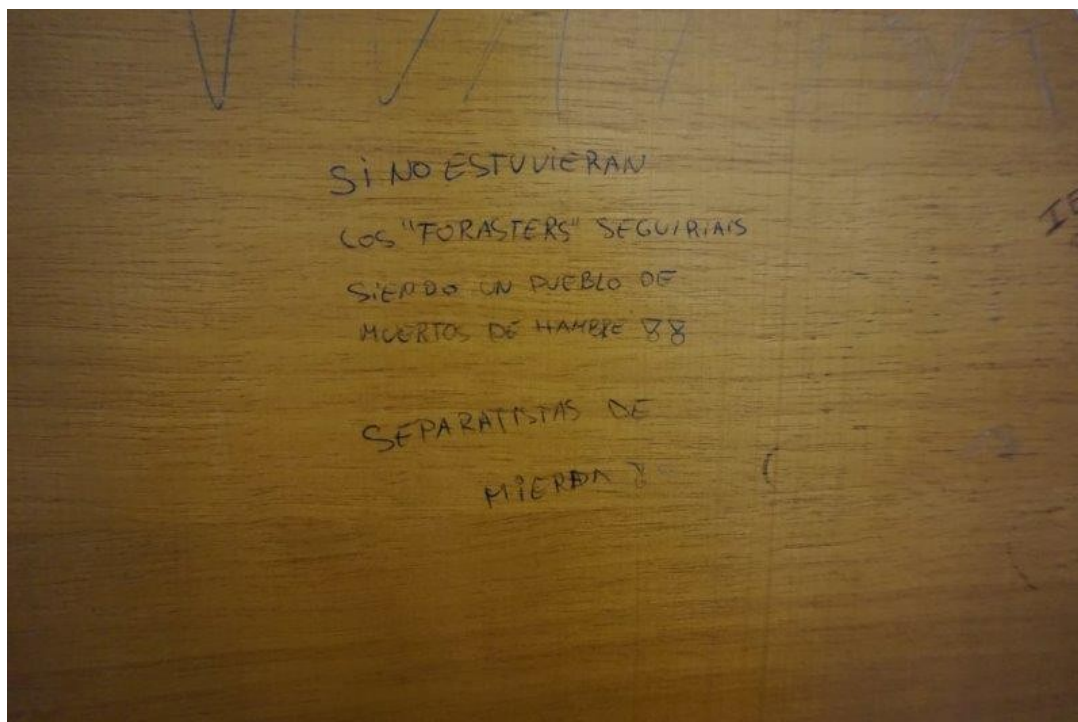 Si NO ESTUViERAN
LOS "FORASTERS" SEGUIRIAIS
SiENDO UN PUEBLO DE
MUERTOS DE HAMBRE 88
SEPARATISTAS DE
MiERDA